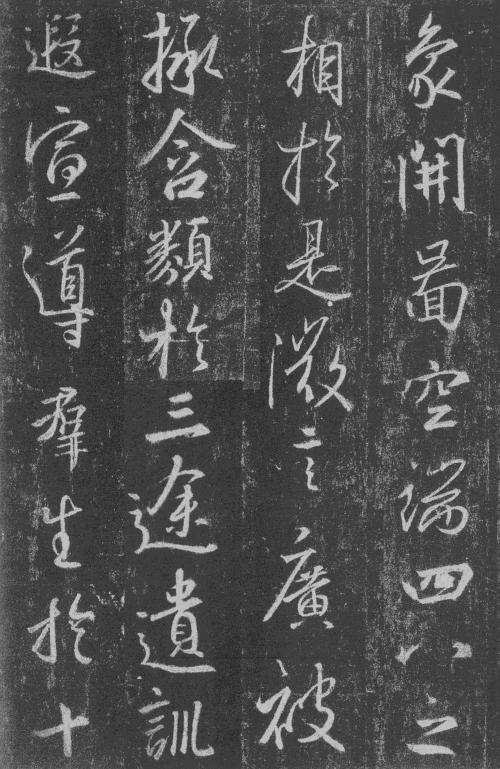 象開啚空端四八之
相於是微言廣被
拯含類於三途遺訓
遐宣導群生於十